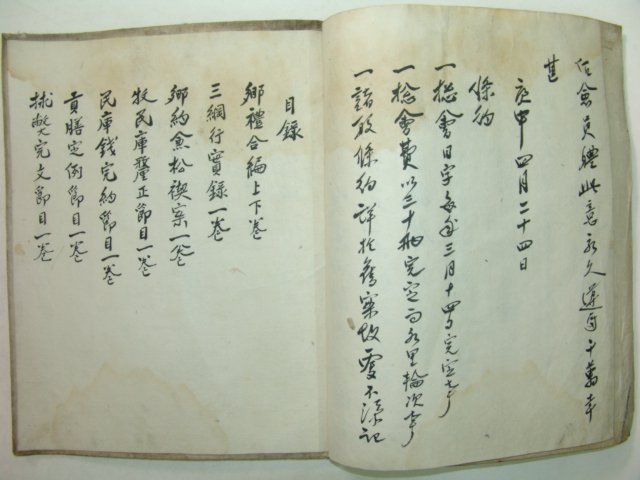 任會員體此意永久遵守千萬幸
甚
庚申四月二十四日
條約
一 捴會日字每年三月十四日完定事
一 捴會費以三十兩完定而各里輪次事
一 諸般條約詳於舊案故更不添記
目錄
鄉禮合編上下卷
三綱行實錄一卷
鄉約兼松禊案一卷
牧民庫釐正節目一卷
民庫錢完約節目一卷
貢膳定例節目一卷
捄弊完文節目一卷